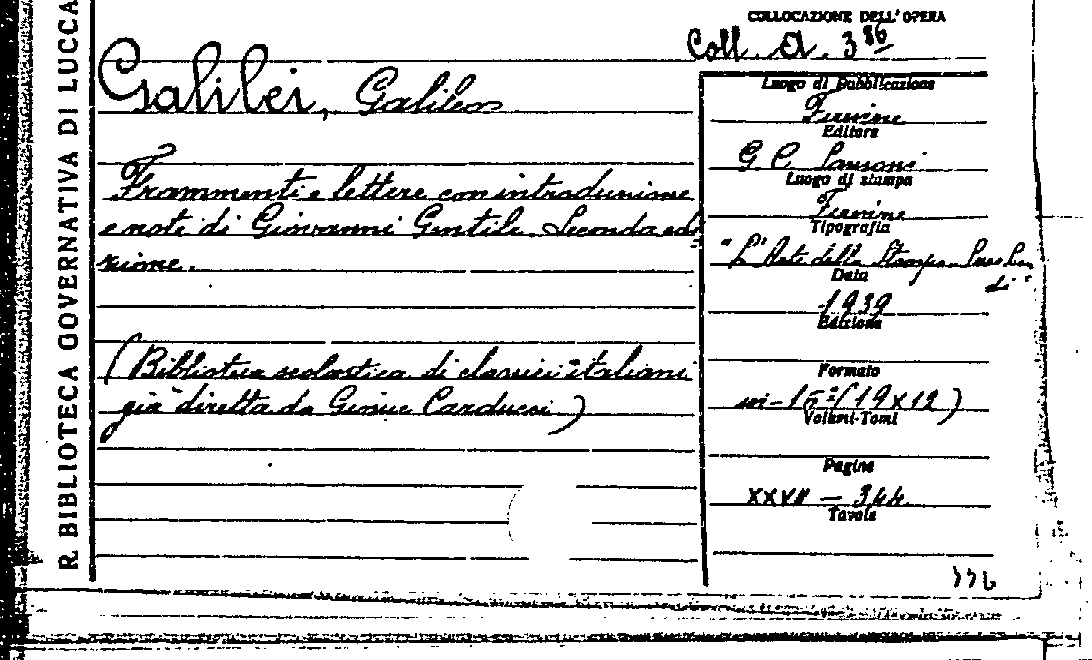 R. BIBLIOTECA GOVERNATIVA DI LUCCA
COLLOCAZIONE DELL'OPERA
Coll. A. 386
Galilei, Galileo
Frammenti e lettere con introduzione
e note di Giovanni Gentile. Seconda edi-
zione.
(Biblioteca scolastica di classici italiani
già diretta da Giosue Carducci)
Luogo di Pubblicazione
Firenze
Editore
G. C. Sansoni
Luogo di stampa
Firenze
Tipografia
"L'Arte della Stampa"
Data
1939
Edizione
Formato
in-16º (19x12)
Volumi-Tomi
Pagine
XXVII - 344
Tavole